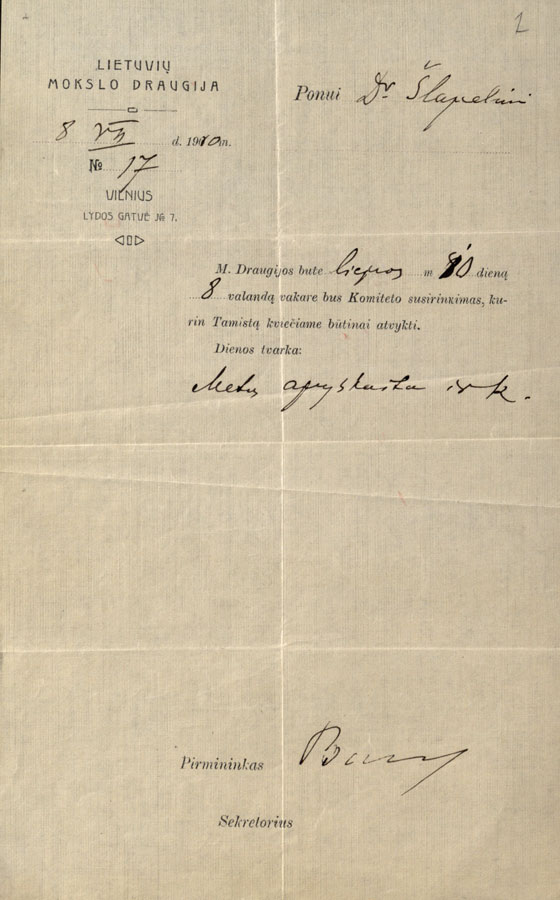 2
LIETUVIŲ
MOKSLO DRAUGIJA
8 VII d. 1910 m.
№ 17
VILNIUS
LYDOS GATVĖ № 7.
Ponui Dr Šlapeliui
M. Draugijos bute liepos m 10 dieną
8 valandą vakare bus Komiteto susirinkimas, ku-
rin Tamistą kviečiame būtinai atvykti.
Dienos tvarka:
Metų apyskaita ir k.
Pirmininkas
Sekretorius